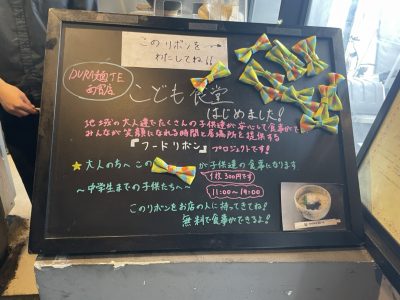 このリボンを
わたしてね!!
DURA麺TE
こども食堂
はじめました!
地域の大人達でたくさんの子供達が安心して食事ができ
みんなが笑顔になれる時間と居場所を提供する
『フードリボン』プロジェクトです!
★大人の方へ この が子供達の食事になります
1枚300円です
〜中学生までの子供たちへ〜
11:00〜19:00
このリボンをお店の人に持ってきてね!
無料で食事ができるよ!